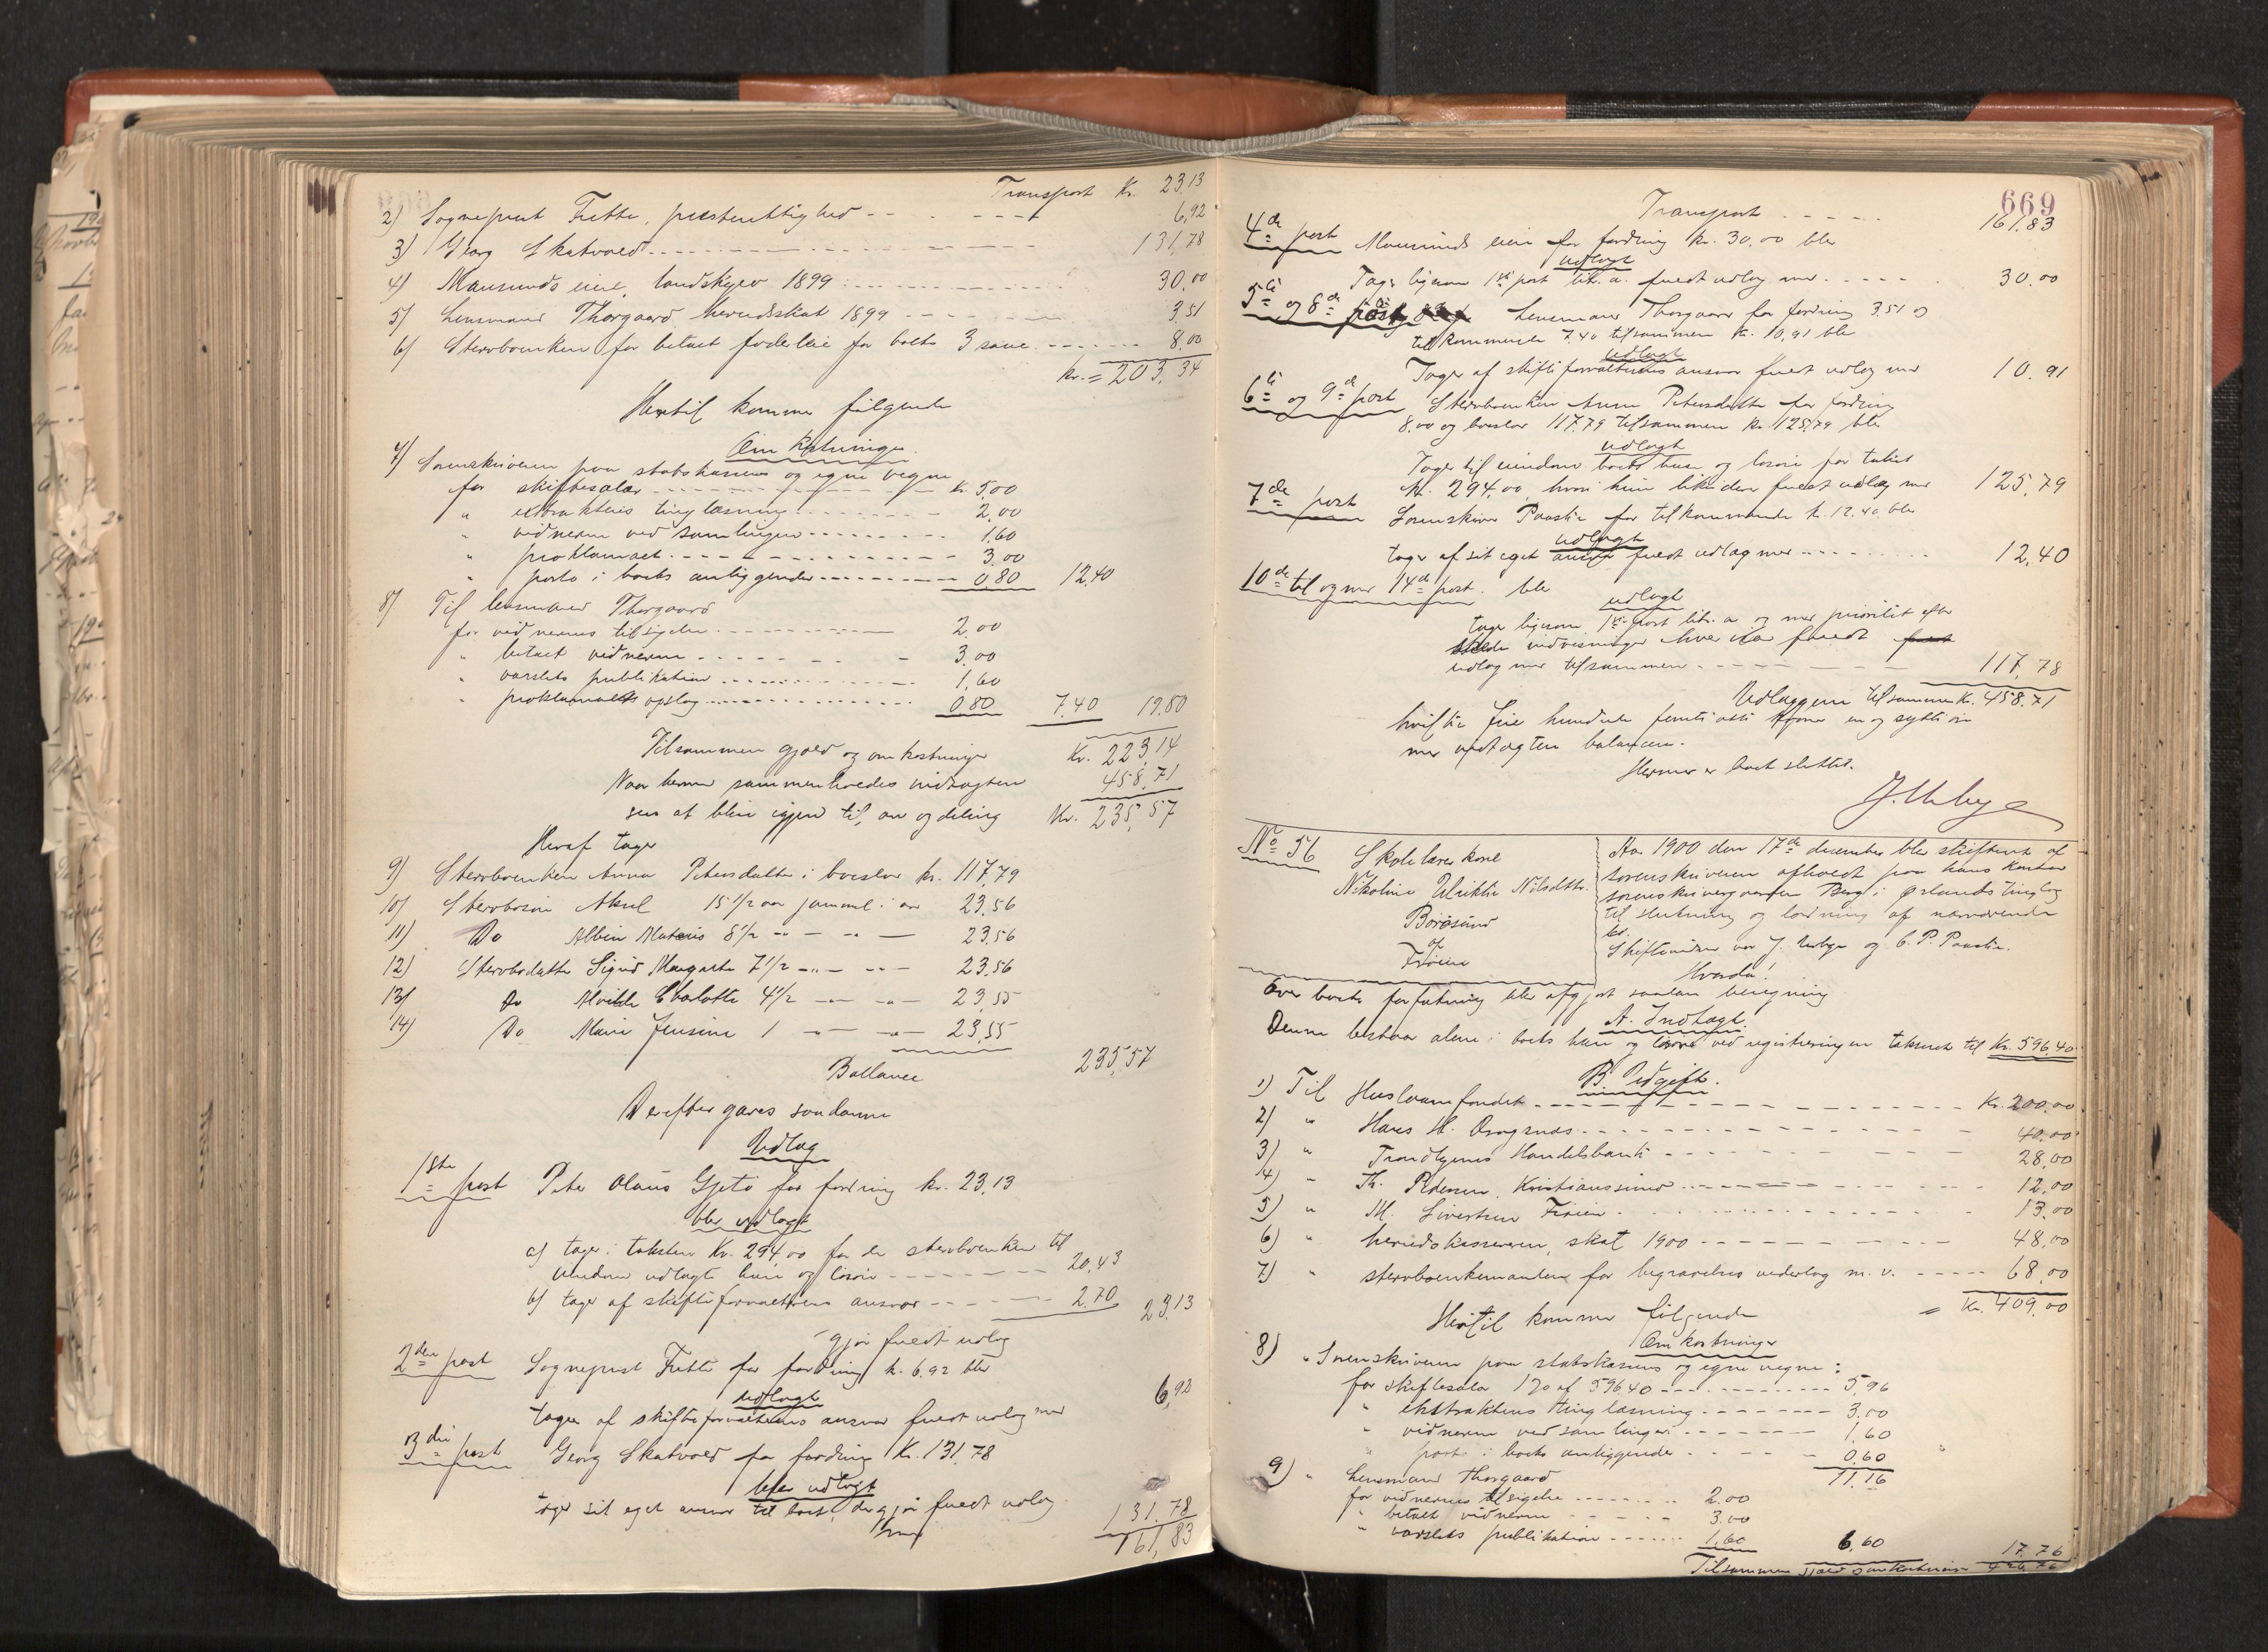 Transport Kr. 23,13
2) Sogneprest Fette, presterettighed 6,92
3) Georg Skatvold 131,78
4) Mausunds eiere, landskyld 1899 30,00
5) Lensmand Thorgaard, heredskat 1899 3,51
6) Stervboenken for betalt foderleie for boets 3 saue 8,00
kr. = 203,34
Hertil kommer følgende
Omkostninger.
7) Sorenskriveren paa statskassens og egne vegne
for skiftesalær kr. 5,00
" extraktens tinglæsning 2,00
" vidnerne ved samlingen 1,60
" proklamaet 3,00
" porto i boets anliggender 0,80 12,40
8) Til lensmand Thorgaard
for vidnernes tilsigelse 2,00
" betalt vidnerne 3,00
" varslets publikation 1,60
" proklamaets opslag 0,80 7,40 19,80
Tilsammen gjæld og omkostninger Kr. 223,14
Naar denne sammenholdes indtægten 458,71
sees at blive igjen til arv og deling Kr. 235,57
Heraf tager
9) Stervboenken Anna Petersdatter i boeslod kr. 117,79
10) Stervbosøn Aksel 15 1/2 aar gammel i arv 23,56
11) Do Albin 8 1/2 - " - - " - 23,56
12) Stervbodatter Sigrid Margrete 7 1/2 - " - - " - 23,56
13) Do Alvilde Charlotte 4 1/2 - " - - " - 23,55
14) Do Marie Jensine 1 - " - - " - 23,55
Ballance 235,57
Derefter gjøres saadanne
Udlæg
1ste post Peter Olaus Gjetø for fordring kr. 23,13
blev udlagt
a) tager i taksten Kr. 294,00 for de stervboenken til
eiendom udlagte huse og løsøre 20,43
b) tager af skifteforvalterens ansvar 2,70 23,13
gjør fuldt udlæg
2den post Sogneprest Fette for fordring kr. 6,92 blev
udlagt
tager af skifteforvalterens ansvar fuldt udlæg med 6,92
3die post Georg Skatvold for fordring Kr. 131,78
blev udlagt
tager sit eget ansvar til boet, der gjør fuldt udlæg
med 131,78
161,83
669
Transport 161,83
4de post Mausunds eiere for fordring kr. 30,00 blev
udlagt
Tager ligesom 1ste post litr. a. fuldt udlæg med 30,00
5te og 8de post Lensmand Thorgaard for fordring 3,51 og
tilkommende 7,40 tilsammen kr. 10,91 blev
udlagt
Tager af skifteforvalterens ansvar fuldt udlæg med 10,91
6te og 9de post Stervboenken Anna Petersdatter for fordring
8,00 og boeslod 117,79 tilsammen Kr. 125,79 blev
udlagt
Tager til eiendom boets huse og løsøre for takst
Kr. 294,00, hvori hun likviderer fuldt udlæg med 125,79
7de post Sorenskriver Paastie for tilkommende kr. 12,40 blev
udlagt
tager af sit eget ansvar fuldt udlæg med 12,40
10de til og med 14de post blev
udlagt
tager ligesom 1ste post litr. a og med prioritet efter
indvisninger hver især fuldt
udlæg med tilsammen 117,78
Udlæggene tilsammen Kr. 458,71
hvilke fire hundrede femti otte kroner en og sytti øre
med indtægten balancerer.
Hermed er boet sluttet.
No 56
Skolelærerkone
Nikoline Ulrikke Nilsdtr.
Borøsund
af
Frøien
Aar 1900 den 17de december blev skifteret af
sorenskriveren afholdt paa hans kontor
sorenskrivergaarden Berg i Ørlands tinglag
til slutning og lodning af nærværende
bo.
Skiftevidner var J. Uebye og C. P. Paastie.
Hvorda!
Over boets forfatning blev afgjort saadan beregning
A. Indtægt.
Denne bestaar alene i boets huse og løsøre ved registreringen takseret til Kr. 596,40
B. Udgift.
1) Til Huslaanefondet Kr. 200,00
2) " Hans H. 40,00
3) " Trondhjems Handelsbank 28,00
4) " Th. Pedersen, Kristianssund 12,00
5) " M. Sivertsen Frøien 13,00
6) " herredskassereren, skat 1900 48,00
7) " stervboenkemanden for begravelses vederlag m. v. 68,00
= Kr. 409,00
Hertil kommer følgende
Omkostninger
8) " Sorenskriveren paa statskassens og egne vegne:
for skiftesalær 1 % af 596,40 5,96
" ekstraktens tinglæsning 3,00
" vidnerne ved samlinger 1,60
" porto i boets anliggender 0,60
11,16
9) " Lensmand Thorgaard
for vidnernes tilsigelse 2,00
" betalt vidnerne 3,00
" varslets publikation 1,60 6,60 17,76
Tilsammen gjæld og omkostninger 426,76